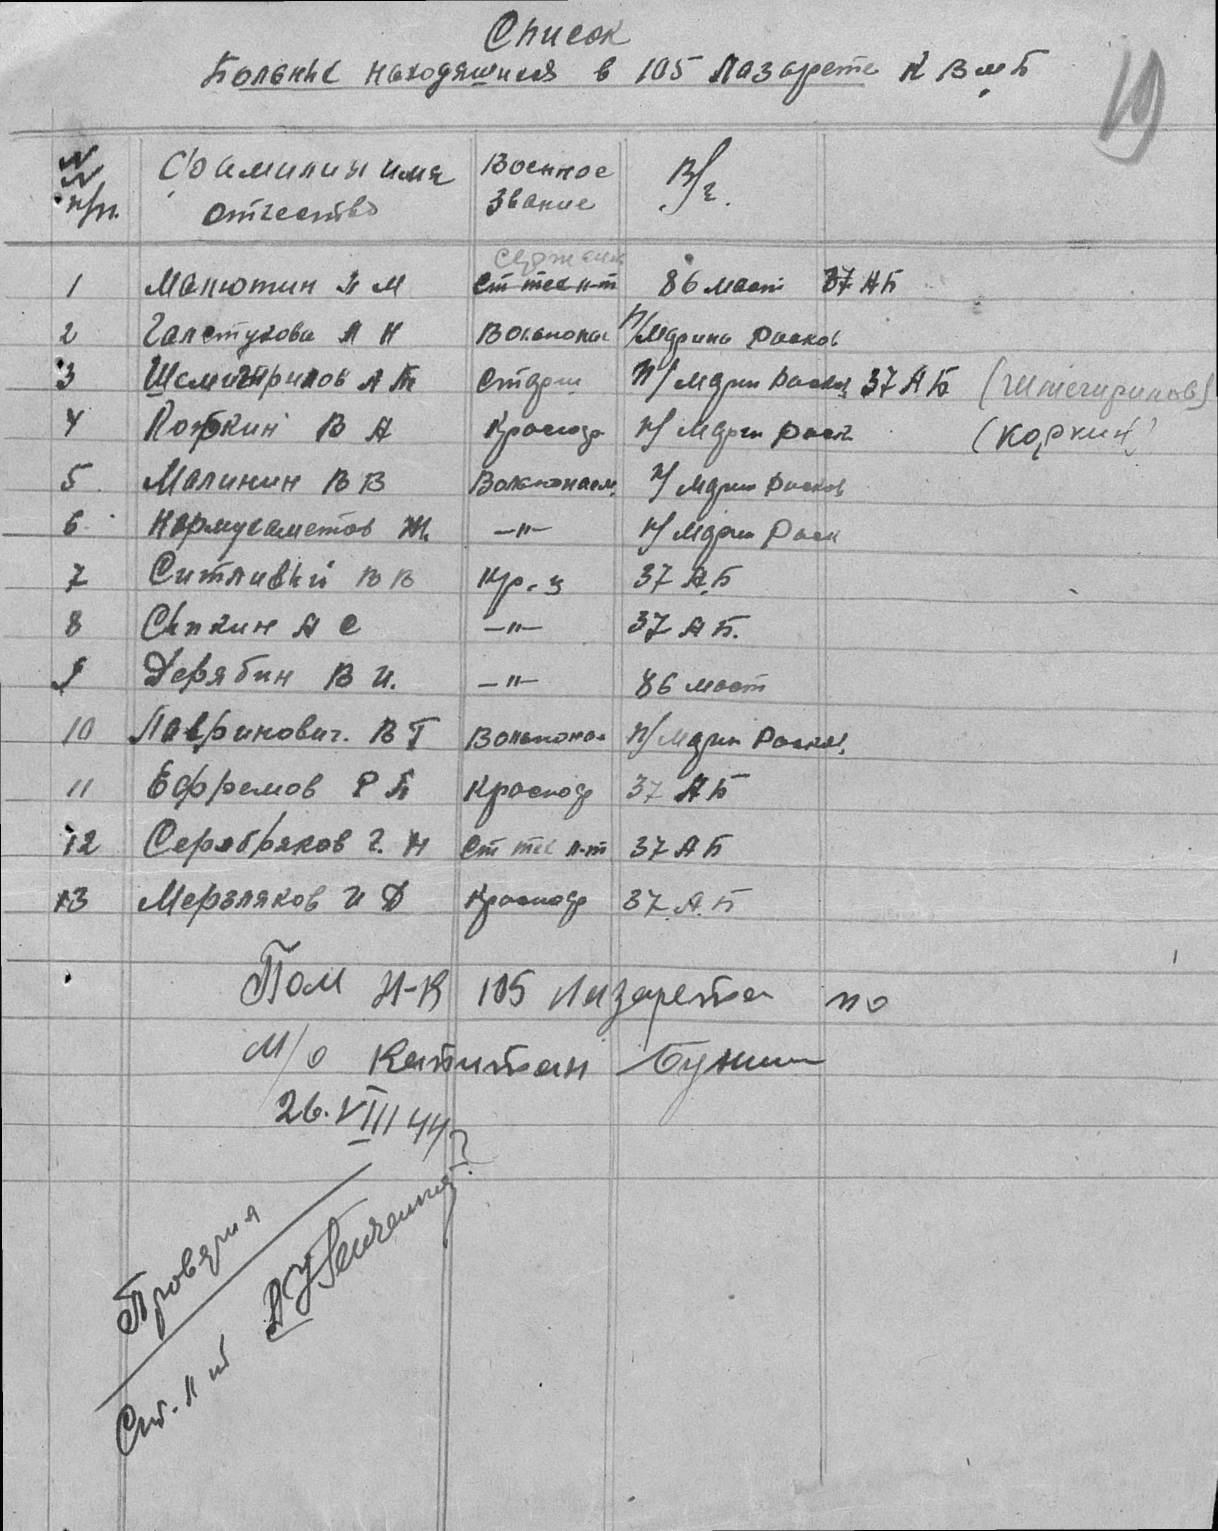 Список
Больных находящихся в 105 Лазарете К В м Б
19
№№ п/п. Фамилия имя отчество Военное звание В/ч.
сержант
1 Манютин П М ст тех л-т 86 мост 37 АБ
2 Галстухова А Н Вольнонас П/Марина Расков
3 А старш П/Марин Раск 37 АБ
4 Коркин В А Краснофл П/Марин Раск (Коркин)
5 Малинин В В Вольнонаем П/Марин Расков
6 Нормухаметов Ж. —"— П/Марин Раск
7 Ситливый В В Кр-ц 37 А.Б
8 Сыпкин А С —"— 37 А Б.
9 Дерябин В И. —"— 86 мост
10 Лавринович. В Г Вольнонае П/Марин Раск
11 Ефремов Р П Краснофл 37 АБ
12 Серебряков Г. Н ст тех л-т 37 АБ
13 Мерзляков И Д Краснофл 37 А.Б
Пом Н-К 105 Лазарета по
М/о Капитан Бунин
26.VIII 44
Проверил
Ст. Л-т